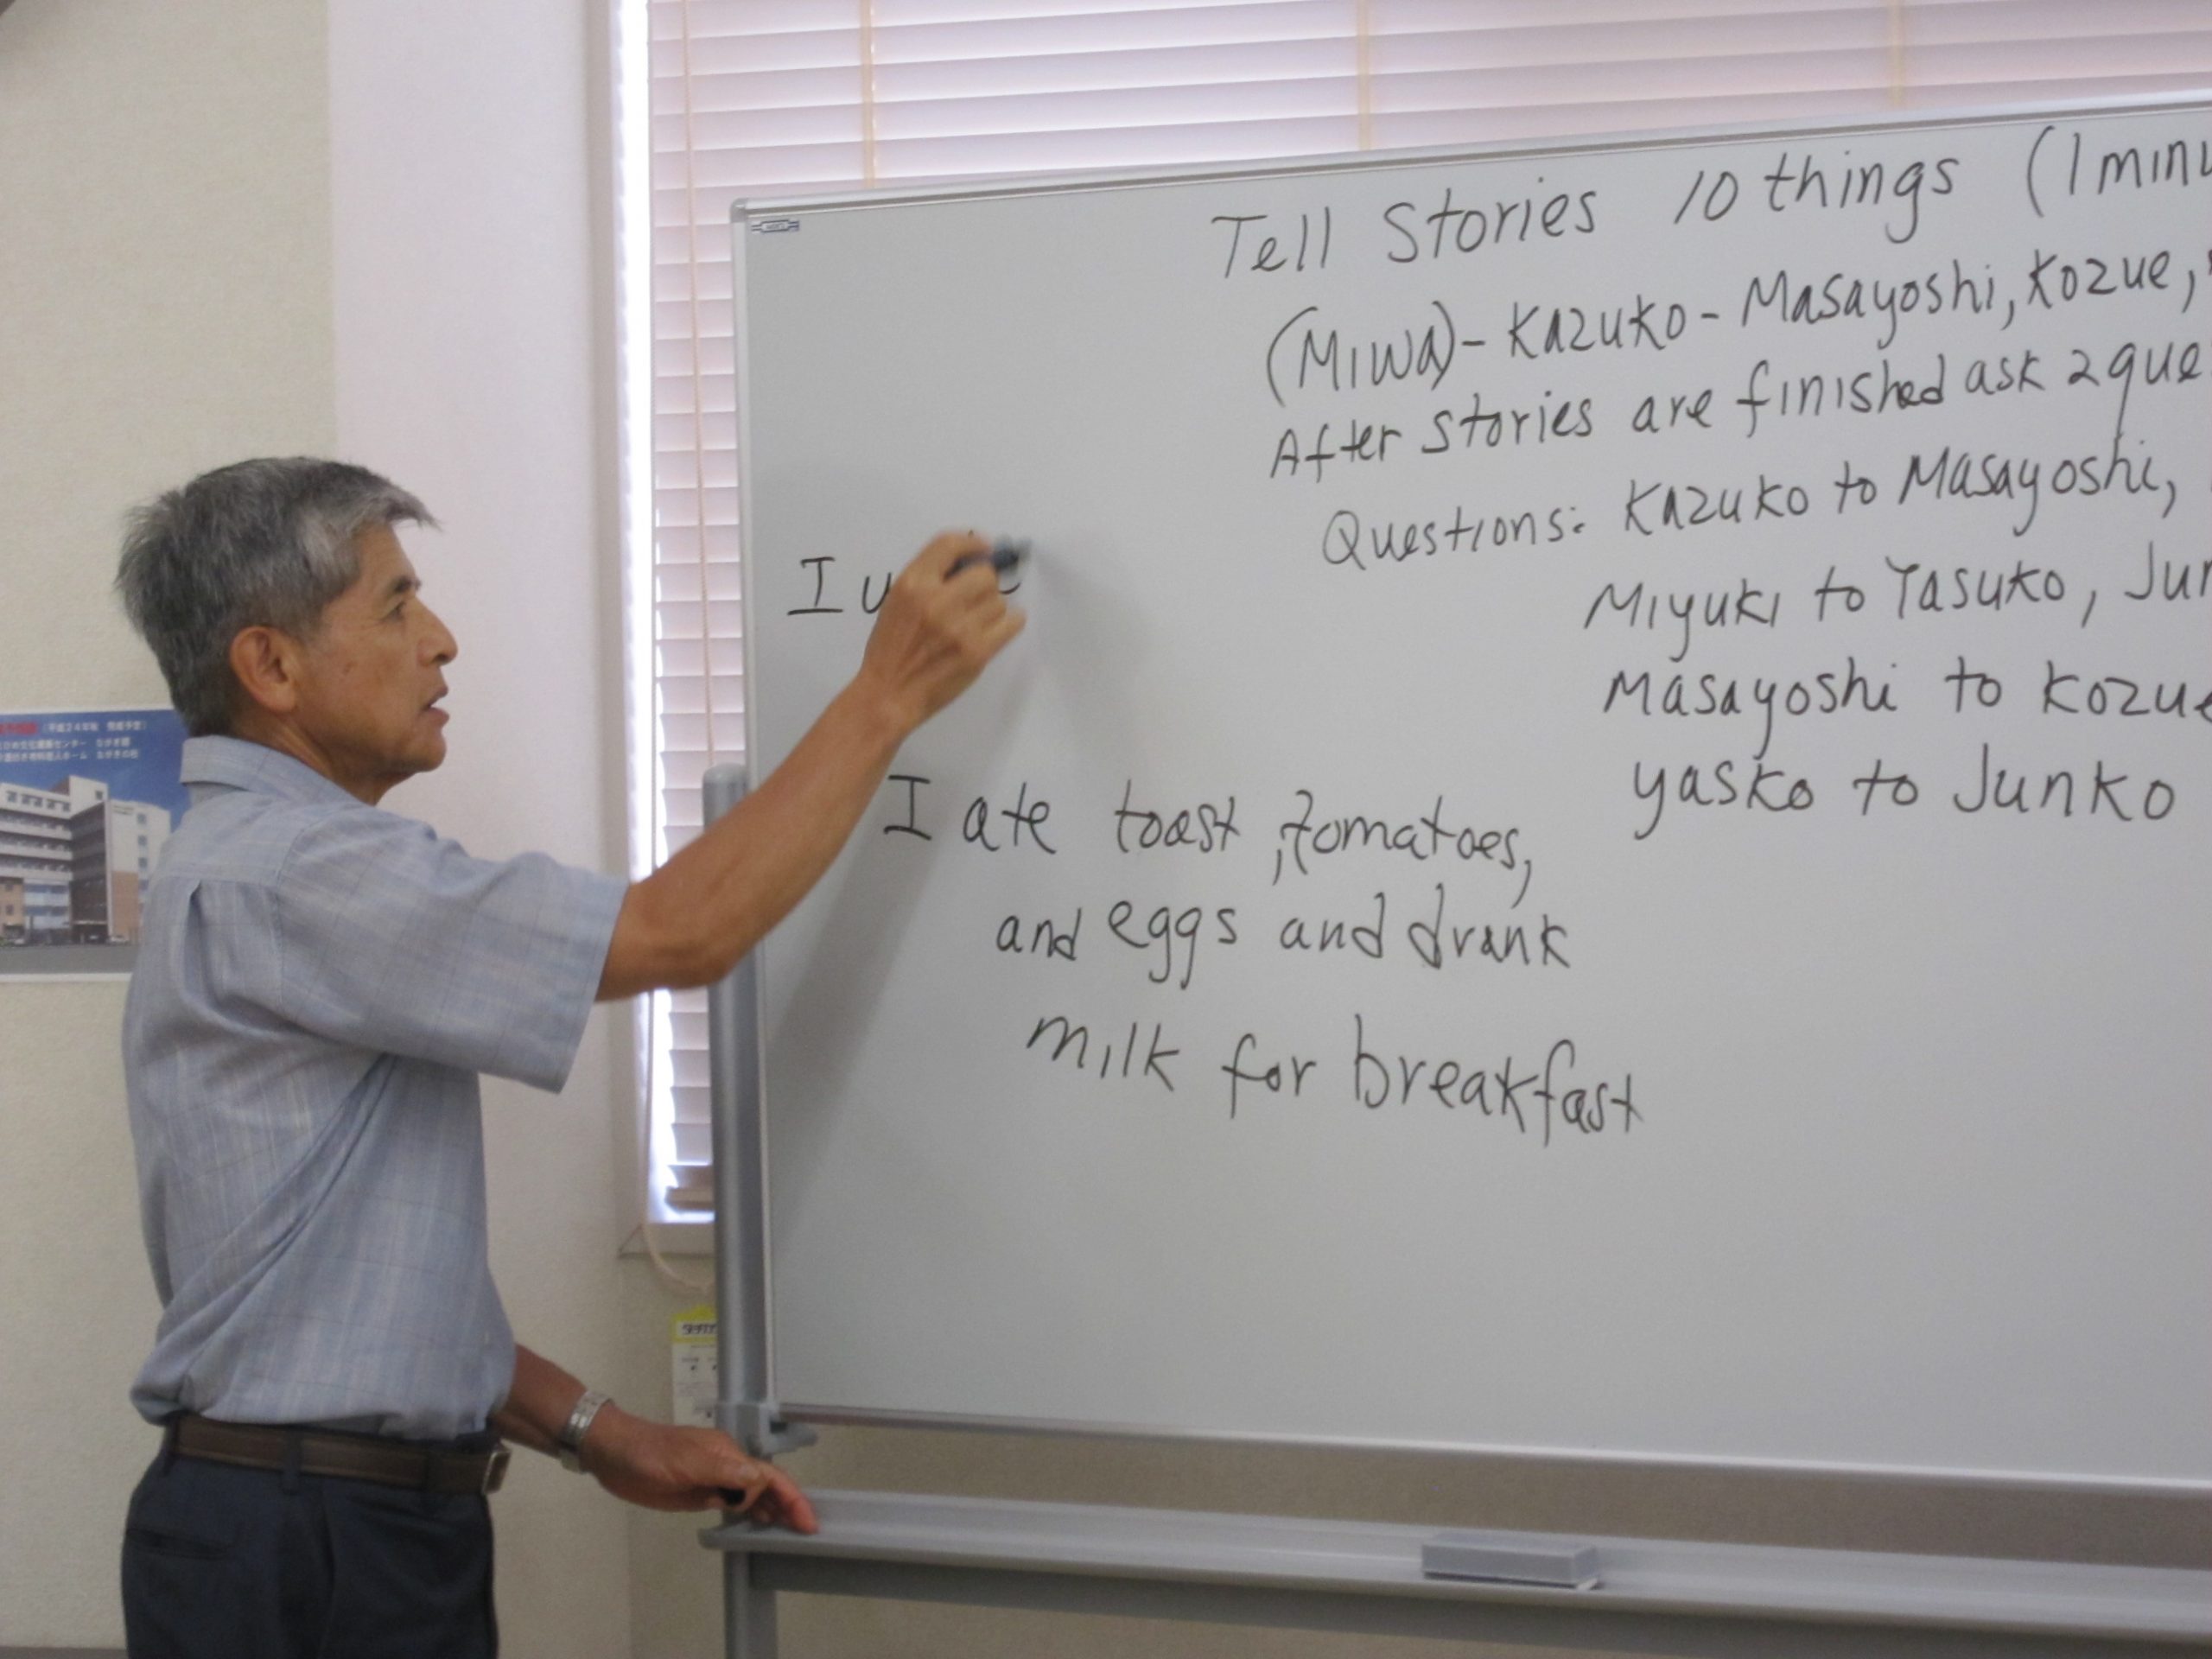 Tell Stories 10 things (1 minu
(MIWA) - Kazuko - Masayoshi, Kozue,
After stories are finished ask 2 que
Questions: Kazuko to Masayoshi,
Miyuki to Yasuko, Jun
Masayoshi to Kozue
Yasko to Junko
I
I ate toast, tomatoes,
and eggs and drank
milk for breakfast
(平成24年秋 完成予定)